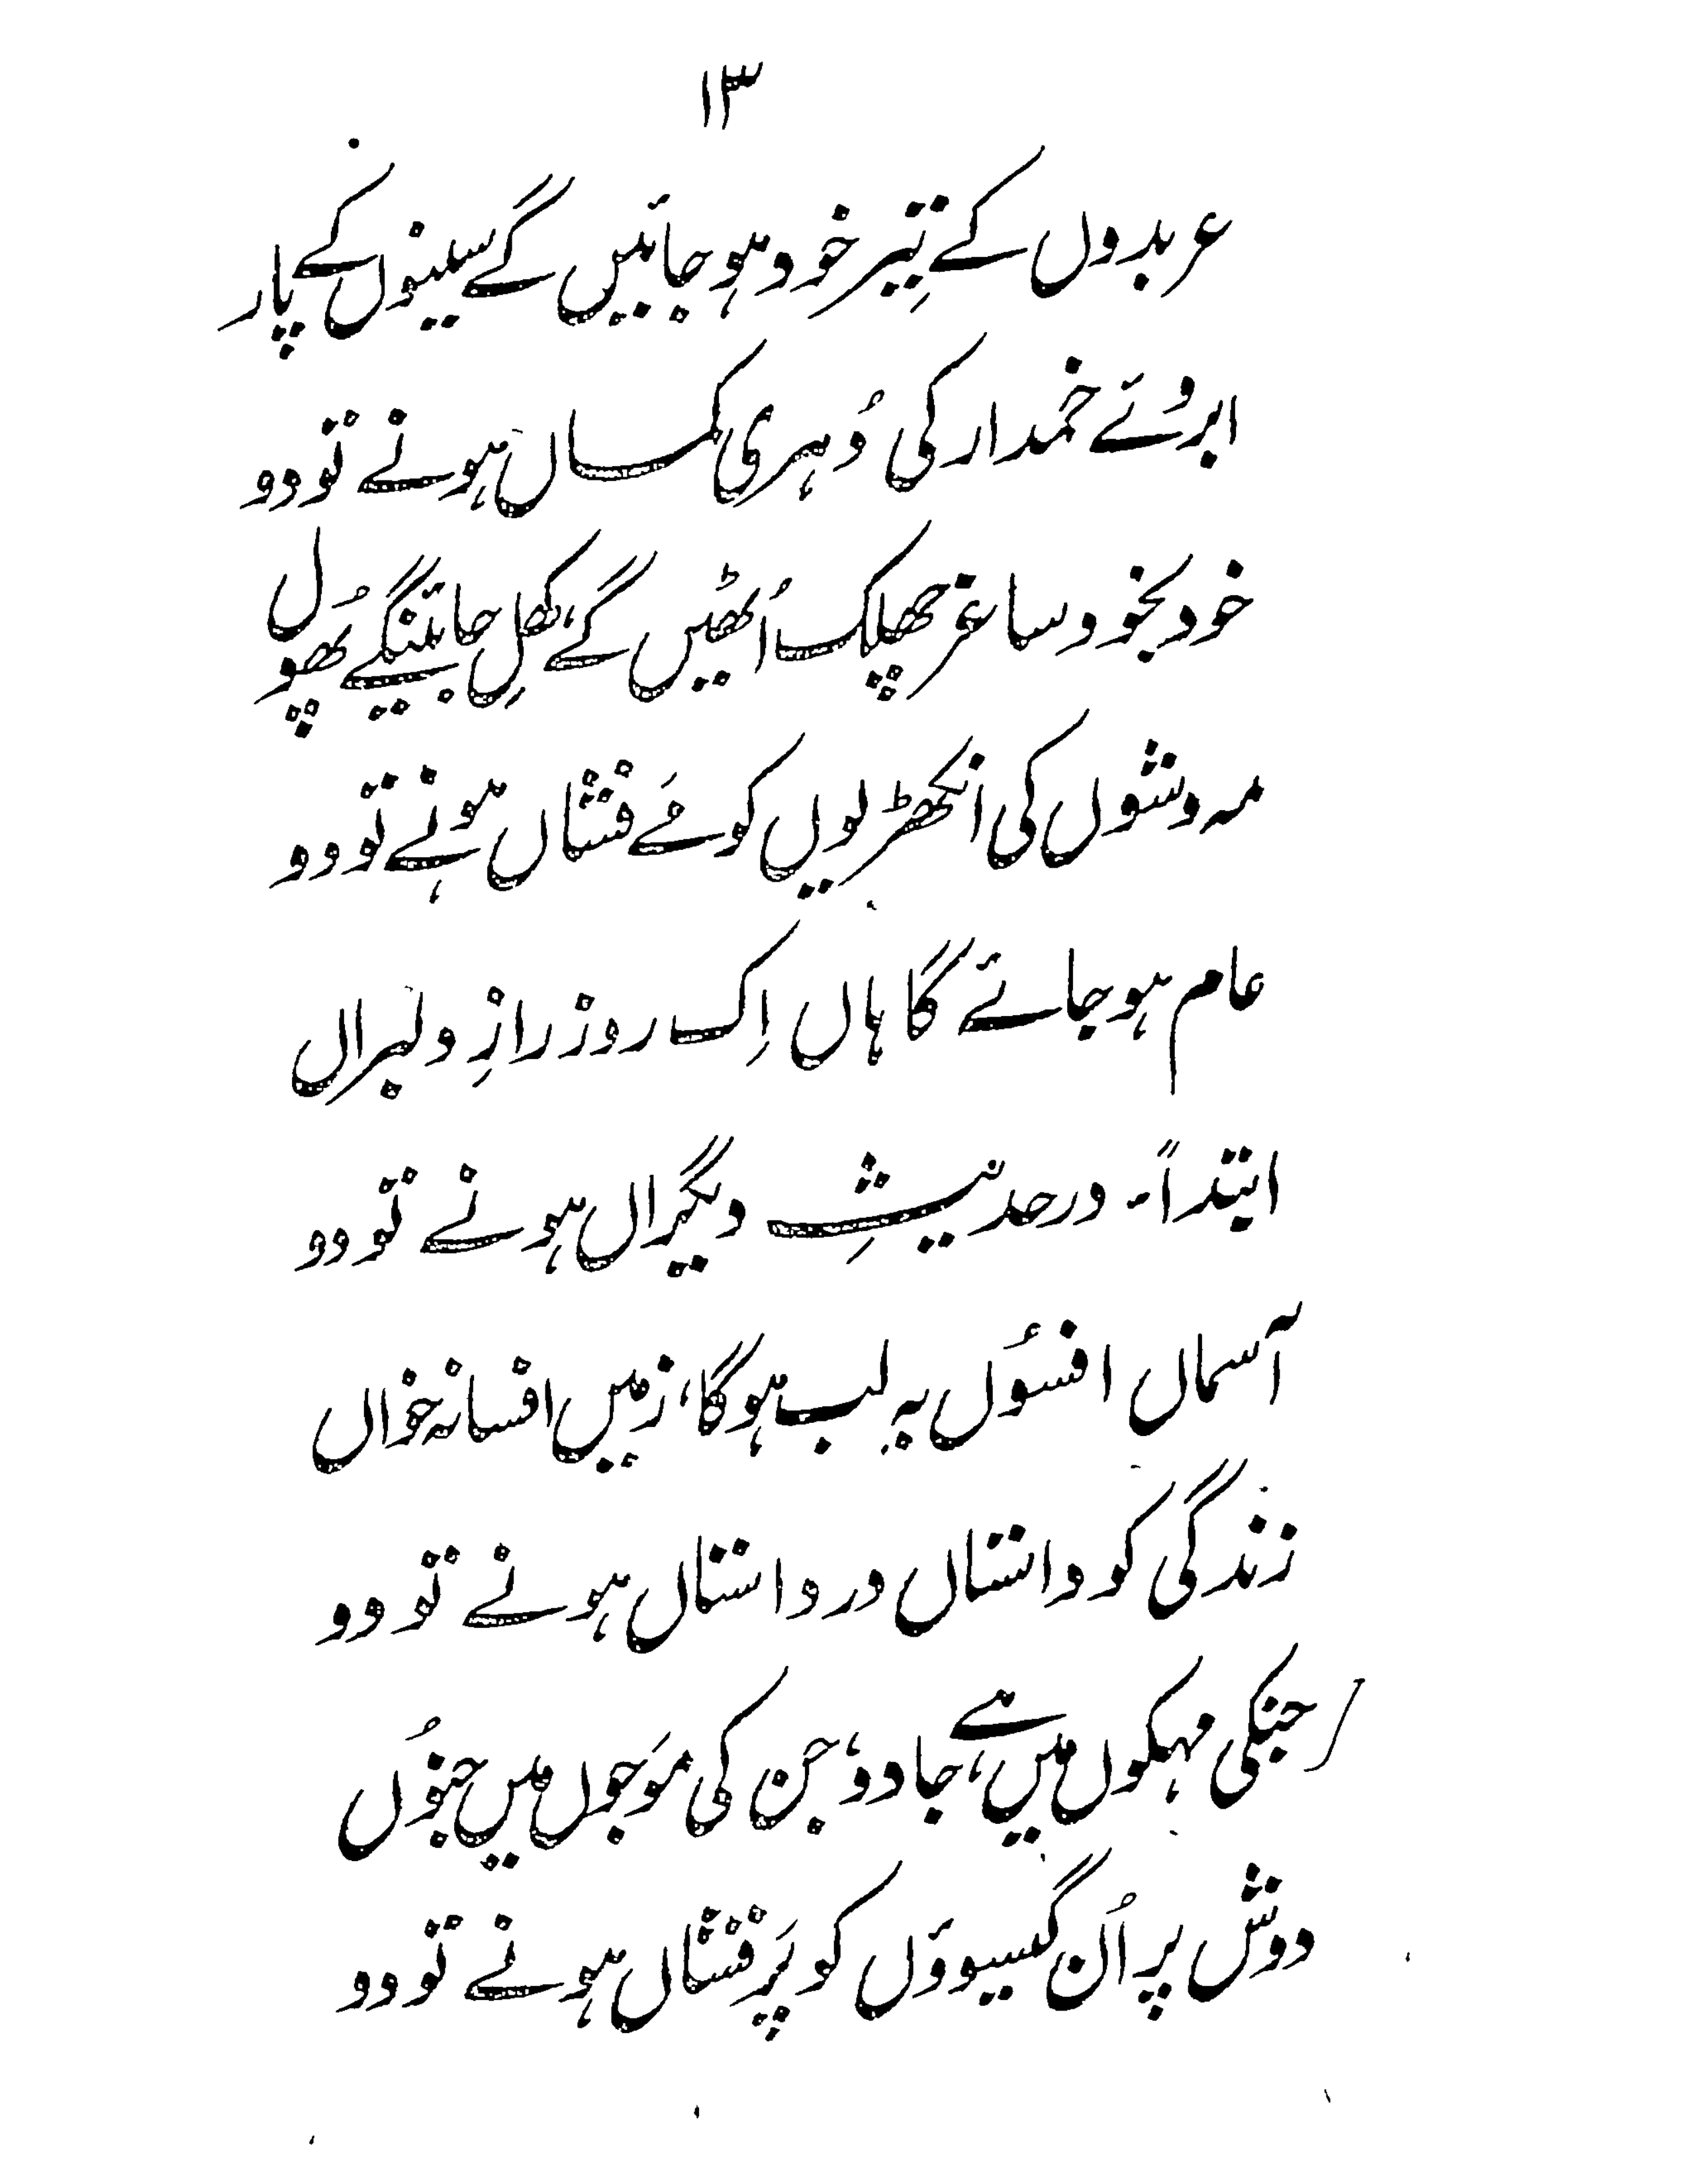 ۱۳
عربدوں کے تیر خود ہو جائیں گے سینوں کے پار
ابروئے خمدار کی دُہری کماں ہونے تو دو
خود بخود ساغر چھلک اُٹھیں گے، کھِل جائینگے پھُول
مہ وشوں کی انکھڑیوں کو مَے فشاں ہونے تو دو
عام ہو جائے گا ہاں اِک روز رازِ دلبراں
ابتداً۔ در حدیثِ دیگراں ہونے تو دو
آسماں افسُوں بہ لب ہوگا، زمیں افسانہ خواں
زندگی کو داستاں در داستاں ہونے تو دو
جنکی مہکوں میں ہے، جادو، جن کی مَوجوں میں جنُوں
دوش پر اُن گیسوؤں کو پَرفشاں ہونے تو دو